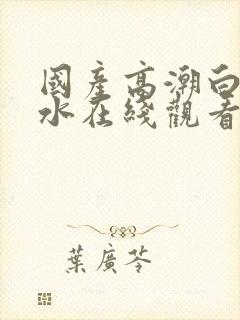 國產高潮白
水在綫觀看
葉廣芩